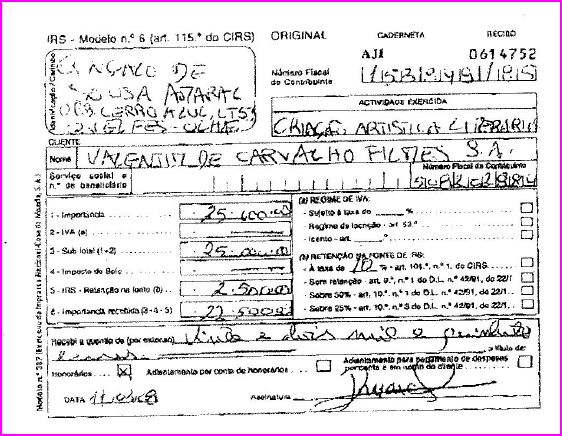 IRS - Modelo n.º 6 (art. 115.º do CIRS)
ORIGINAL
CADERNETA
RECIBO
AJI
0614752
Identificação / Carimbo
GONÇALO DE
SOUSA AMARAL
URB CERRO AZUL, LT 53
Número Fiscal
de Contribuinte
ACTIVIDADE EXERCIDA
CRIAÇÃO ARTISTICA LITERARIA
CLIENTE
Nome VALENTIM DE CARVALHO FILMES S.A.
Serviço social e
n.º de beneficiário
Número Fiscal do Contribuinte
1 - Importância 25.000.00
2 - IVA (a)
3 - Sub total (1+2) 25.000.00
4 - Imposto do Selo
5 - IRS - Retenção na fonte (b) 2.500.00
6 - Importância recebida (3-4-5) 22.500.00
(a) REGIME DE IVA:
- Sujeito à taxa de %
- Regime de isenção - art. 53.º
- Isento - art. º
(b) RETENÇÃO NA FONTE DE IRS:
- À taxa de 10 % - art. 101.º, n.º 1, do CIRS
- Sem retenção - art. 9.º, n.º 1 do D.L. n.º 42/91, de 22/1
- Sobre 50% - art. 10.º, n.º 1 do D.L. n.º 42/91, de 22/1
- Sobre 25% - art. 10.º, n.º 2 do D.L. n.º 42/91, de 22/1
Recebi a quantia de (por extenso) Vinte e dois mil e quinhentos
euros
a título de:
Honorários X
Adiantamento por conta de honorários
Adiantamento para pagamento de despesas
por conta e em nome do cliente
DATA
Assinatura